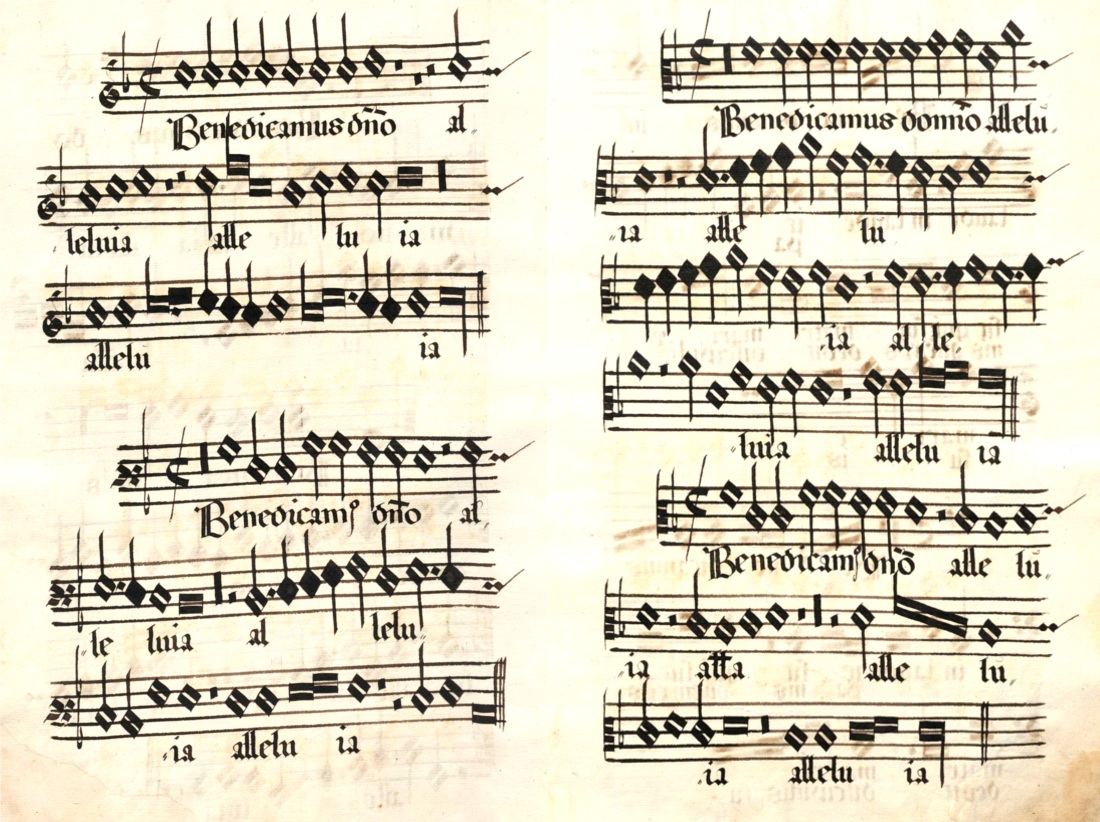 Benedicamus dn̄o al
leluia alle lu ia
allelu ia
Benedicamꝰ dn̄o al
le luia al lelu
ia allelu ia
Benedicamus domīo allelu
ia alle lu
ia al le
luia allelu ia
Benedicamꝰ dn̄o alle lu
ia alla alle lu
ia allelu ia